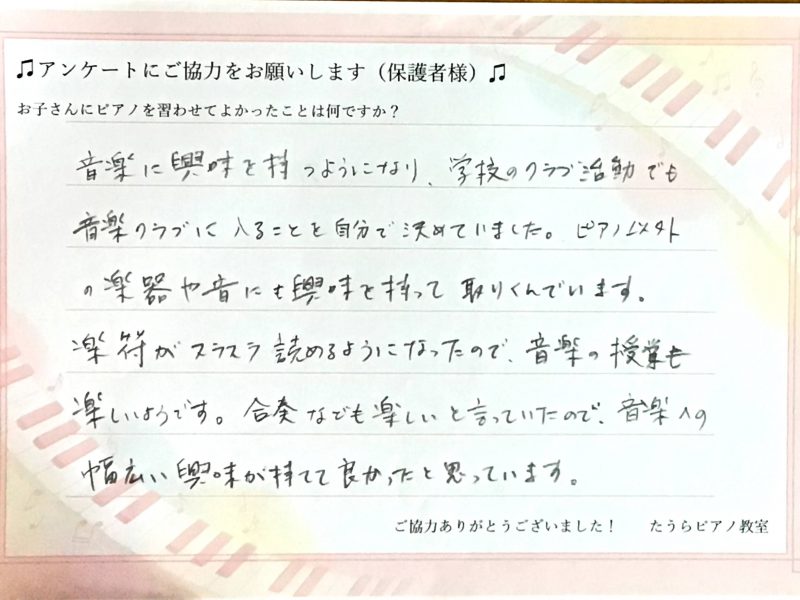 ♫アンケートにご協力をお願いします（保護者様）♫
お子さんにピアノを習わせてよかったことは何ですか？
音楽に興味を持つようになり、学校のクラブ活動でも
音楽クラブに入ることを自分で決めていました。ピアノ以外
の楽器や音にも興味を持って取りくんでいます。
楽符がスラスラ読めるようになったので、音楽の授業も
楽しいようです。合奏なども楽しいと言っていたので、音楽への
幅広い興味が持てて良かったと思っています。
ご協力ありがとうございました！ たうらピアノ教室